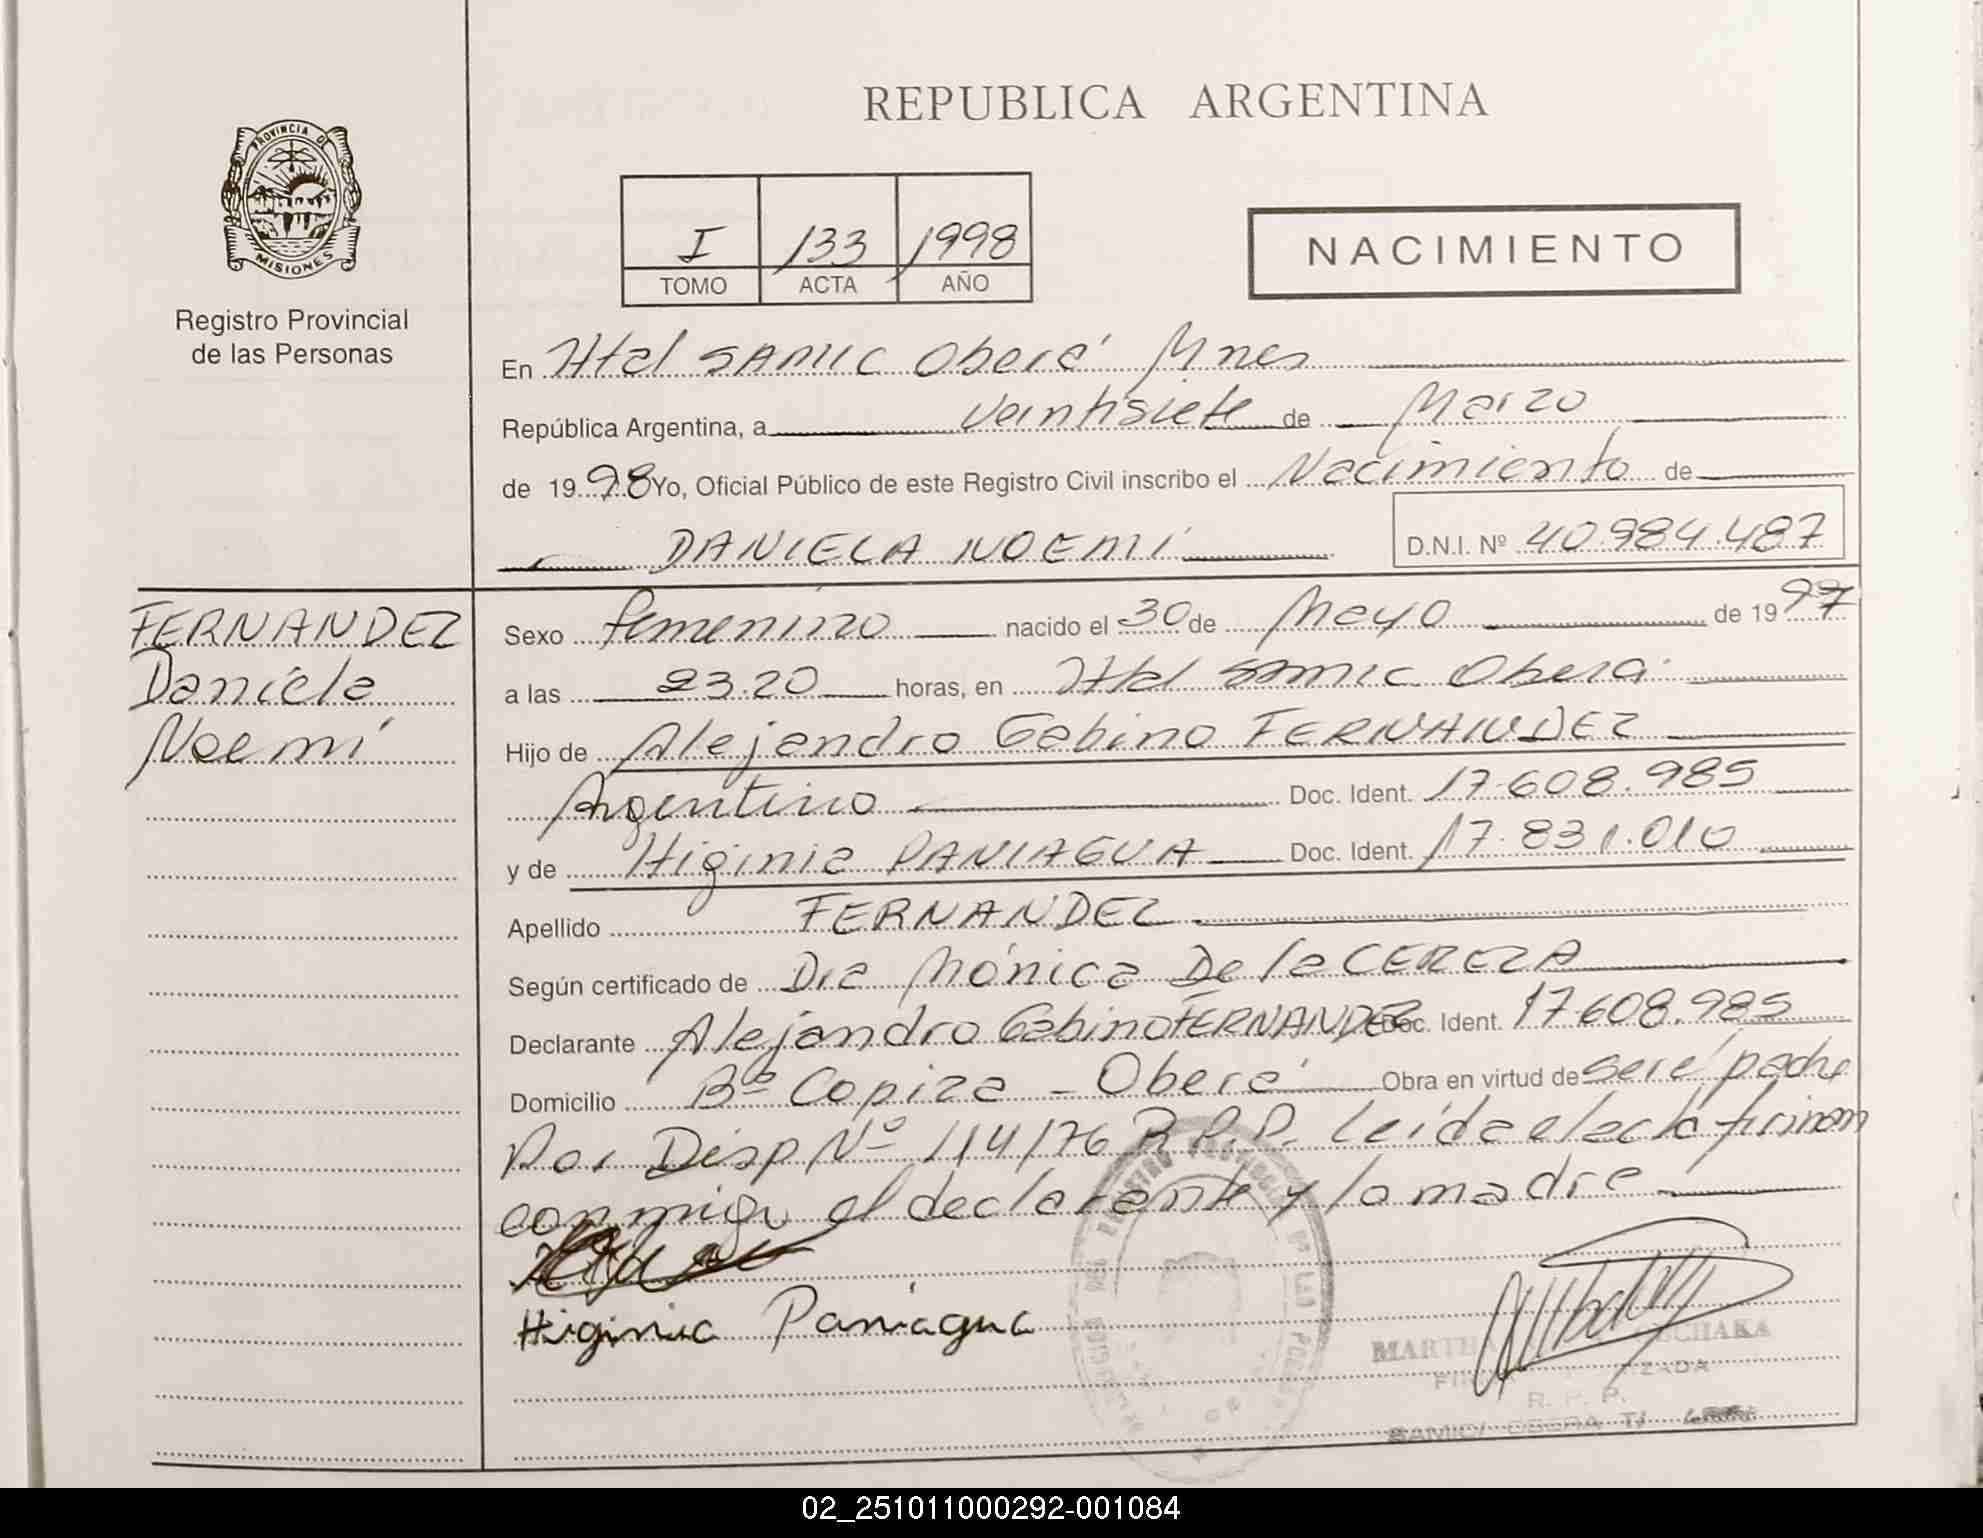 REPUBLICA ARGENTINA
PROVINCIA DE
MISIONES
Registro Provincial
de las Personas
I 133 1998
TOMO ACTA AÑO
NACIMIENTO
En Htal SAMIC Oberá Mnes
República Argentina, a veintisiete de Marzo
de 1998 Yo, Oficial Público de este Registro Civil inscribo el Nacimiento de
DANIELA NOEMI
D.N.I. Nº 40.984.487
FERNANDEZ
Daniela
Noemí
Sexo femenino nacido el 30 de Mayo de 1997
a las 23.20 horas, en Htal SAMIC Oberá
Hijo de Alejandro Gabino FERNANDEZ
Argentino Doc. Ident. 17.608.985
y de Higinia PANIAGUA Doc. Ident. 17.831.010
Apellido FERNANDEZ
Según certificado de Dra Mónica De la CEREZA
Declarante Alejandro Gabino FERNANDEZ Doc. Ident. 17.608.985
Domicilio Bº Copiza - Oberá Obra en virtud de ser el padre
Por Disp Nº 114/76 R.P.P. Leída el acta firman
conmigo el declarante y la madre
Higinia Paniagua
MARTHA SCHAKA
R. P. P.
SAMIC/ OBERA
02_251011000292-001084